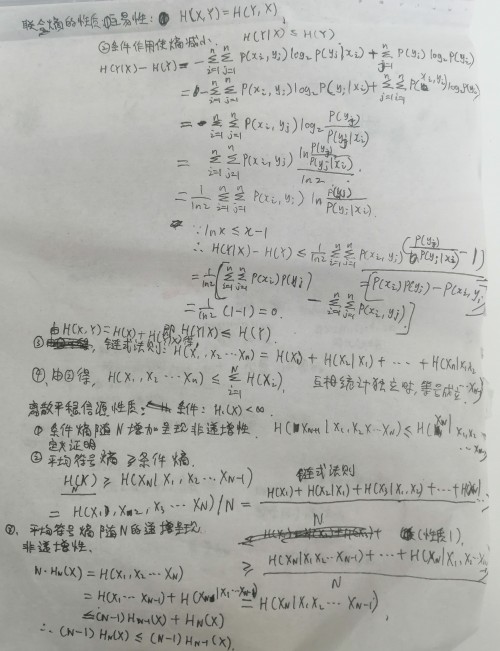 联合熵的性质:互易性: ① H(X,Y)=H(Y,X)
②条件作用使熵减小. H(Y|X) ≤ H(Y)
H(Y|X)-H(Y) = -∑_{i=1}^{n}∑_{j=1}^{n} P(x_i,y_j) log_2 P(y_j|x_i) + ∑_{j=1}^{n} P(y_j) log_2 P(y_j)
= -∑_{i=1}^{n}∑_{j=1}^{n} P(x_i,y_j) log_2 P(y_j|x_i) + ∑_{j=1}^{n}∑_{i=1}^{n} P(x_i,y_j) log_2 P(y_j)
= ∑_{i=1}^{n}∑_{j=1}^{n} P(x_i,y_j) log_2 P(y_j)/P(y_j|x_i)
= ∑_{i=1}^{n}∑_{j=1}^{n} P(x_i,y_j) ln P(y_j)/P(y_j|x_i) / ln2.
= 1/ln2 ∑_{i=1}^{n}∑_{j=1}^{n} P(x_i,y_j) ln P(y_j)/P(y_j|x_i).
∵ lnx ≤ x-1
∴ H(Y|X)-H(Y) ≤ 1/ln2 ∑_{i=1}^{n}∑_{j=1}^{n} P(x_i,y_j) (P(y_j)/P(y_j|x_i) - 1)
= 1/ln2 [∑_{i=1}^{n}∑_{j=1}^{n} P(x_i)P(y_j) - ∑_{i=1}^{n}∑_{j=1}^{n} P(x_i,y_j)]
= P(x_i)P(y_j) - P(x_i,y_j)
= 1/ln2 (1-1) = 0.
即 H(Y|X) ≤ H(Y).
③由H(X,Y)=H(X)+H(Y|X)得, 链式法则: H(X_1,X_2⋯X_n) = H(X_1) + H(X_2|X_1) + ⋯ + H(X_n|X_1X_2⋯X_{n-1})
④.由②得, H(X_1,X_2⋯X_n) ≤ ∑_{i=1}^{N} H(X_i), 互相统计独立时,等号成立.
离散平稳信源性质: 条件: H_1(X)<∞.
① 条件熵随N增加呈现非递增性. H(X_{N+1}|X_1,X_2⋯X_N) ≤ H(X_N|X_1,X_2,⋯X_{N-1})
定义证明
② 平均符号熵 ≥ 条件熵.
H_N(X) ≥ H(X_N|X_1,X_2⋯X_{N-1}) 链式法则
= H(X_1,X_2,X_3⋯X_N)/N = H(X_1)+H(X_2|X_1)+H(X_3|X_1,X_2)+⋯+H(X_N| / N
③. 平均符号熵随N的递增呈现 (性质1).
非递增性. ≥ H(X_N|X_1X_2⋯X_{N-1})+⋯+H(X_N|X_1,X_2⋯X_{N-1}) / N
N·H_N(X) = H(X_1,X_2⋯X_N) = H(X_N|X_1X_2⋯X_{N-1}).
= H(X_1⋯X_{N-1}) + H(X_N|X_1⋯X_{N-1})
≤(N-1)H_{N-1}(X) + H_N(X)
∴ (N-1)H_N(X) ≤ (N-1)H_{N-1}(X).